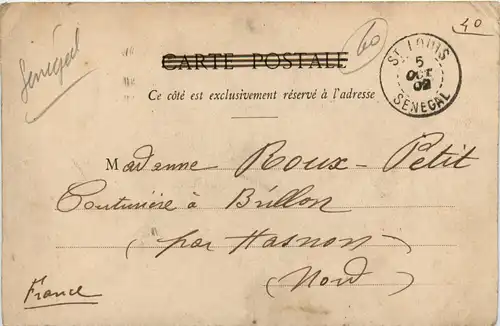 Sénégal
60
40
CARTE POSTALE
ST LOUIS
5
OCT
02
SENEGAL
Ce côté est exclusivement réservé à l'adresse
Madame Roux-Petit
Couturière à Brillon
(par Hasnon)
(Nord)
France